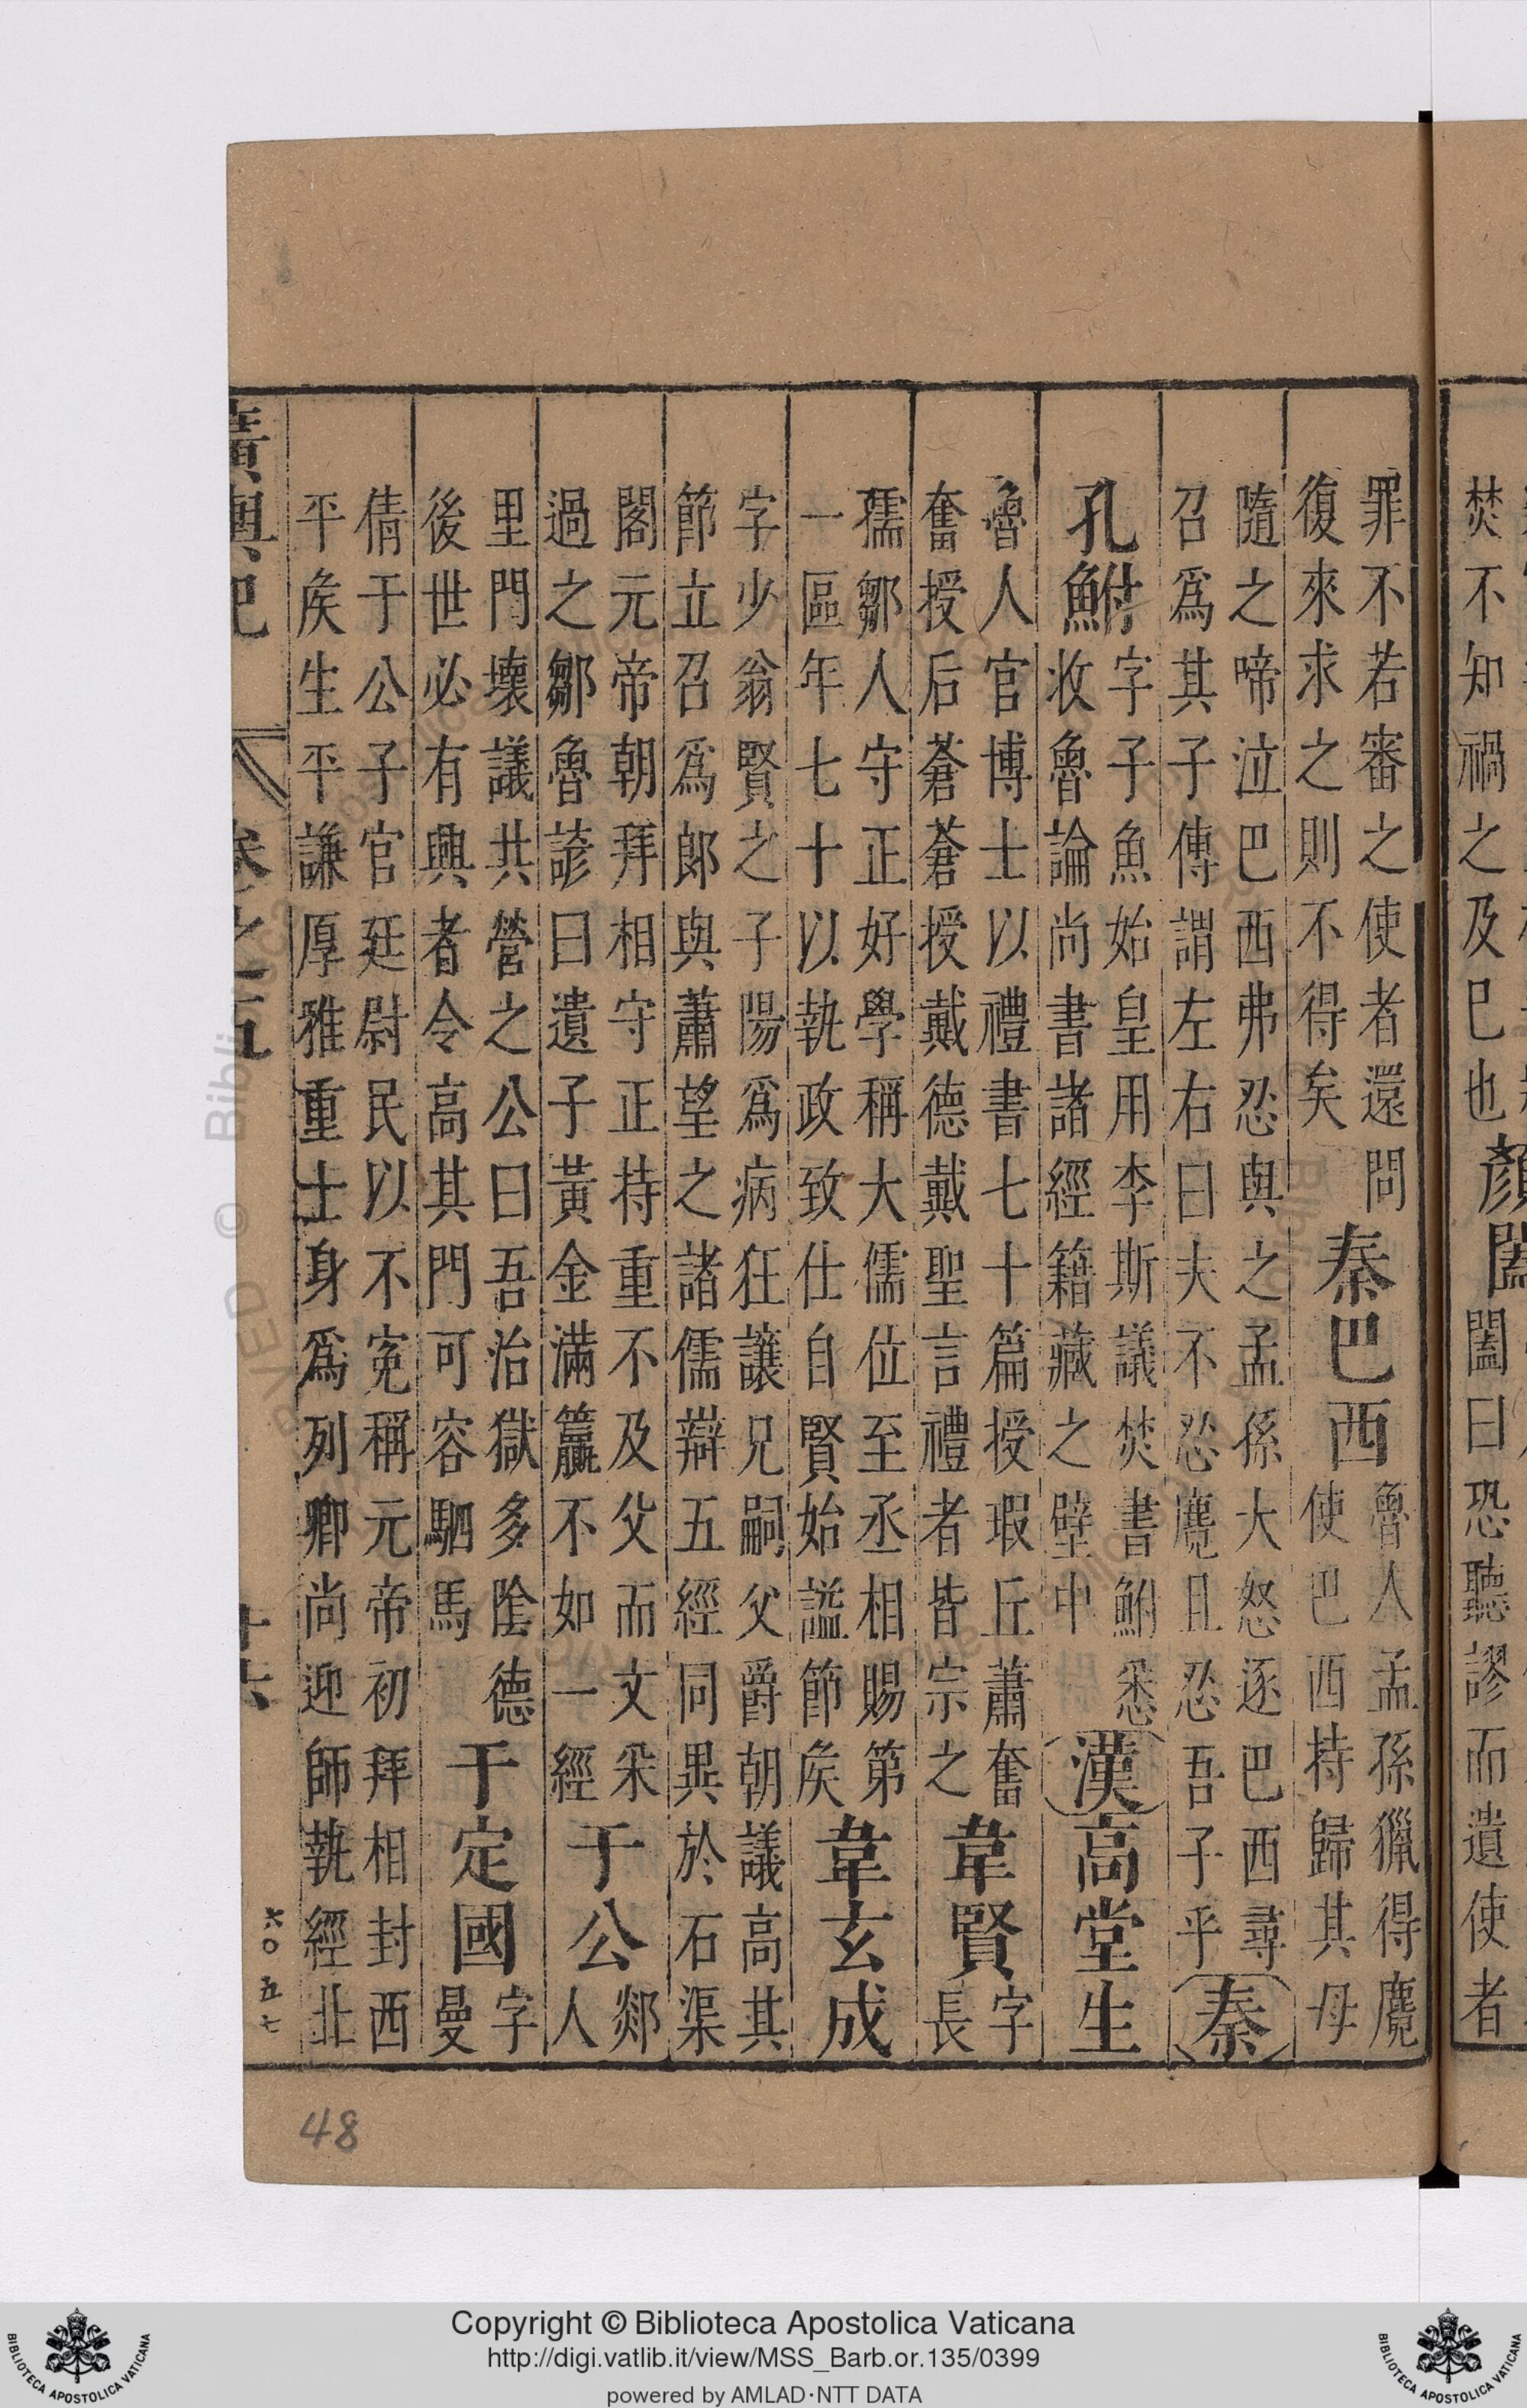 焚不知禍之及巳也
顏闔
闔曰恐聽謬而遺使者
罪不若審之使者還問
復來求之則不得矣
秦巴西
魯人孟孫獵得麑
使巴西持歸其母
隨之啼泣巴西弗忍與之孟孫大怒逐巴西尋
召爲其子傳謂左右曰夫不忍麑且忍吾子乎
秦
孔鮒
字子魚始皇用李斯議焚書鮒悉
收魯論尚書諸經籍藏之壁中
漢高堂生
魯人官博士以禮書七十篇授瑕丘蕭奮
奮授后蒼蒼授戴德戴聖言禮者皆宗之
韋賢
字
長
孺鄒人守正好學稱大儒位至丞相賜第
一區年七十以執政致仕自賢始謚節矦
韋玄成
字少翁賢之子陽爲病狂讓兄嗣父爵朝議高其
節立召爲郎與蕭望之諸儒辯五經同異於石渠
閣元帝朝拜相守正持重不及父而文釆
過之鄒魯諺曰遺子黃金滿籯不如一經
于公
郯
人
里門壞議共營之公曰吾治獄多陰德
後世必有興者令高其門可容駟馬
于定國
字
曼
倩于公子官廷尉民以不寃稱元帝初拜相封西
平矦生平謙厚雅重士身爲列卿尚迎師執經北
廣輿記 卷之五 十六
六〇五七
48
Copyright © Biblioteca Apostolica Vaticana
http://digi.vatlib.it/view/MSS_Barb.or.135/0399
powered by AMLAD·NTT DATA